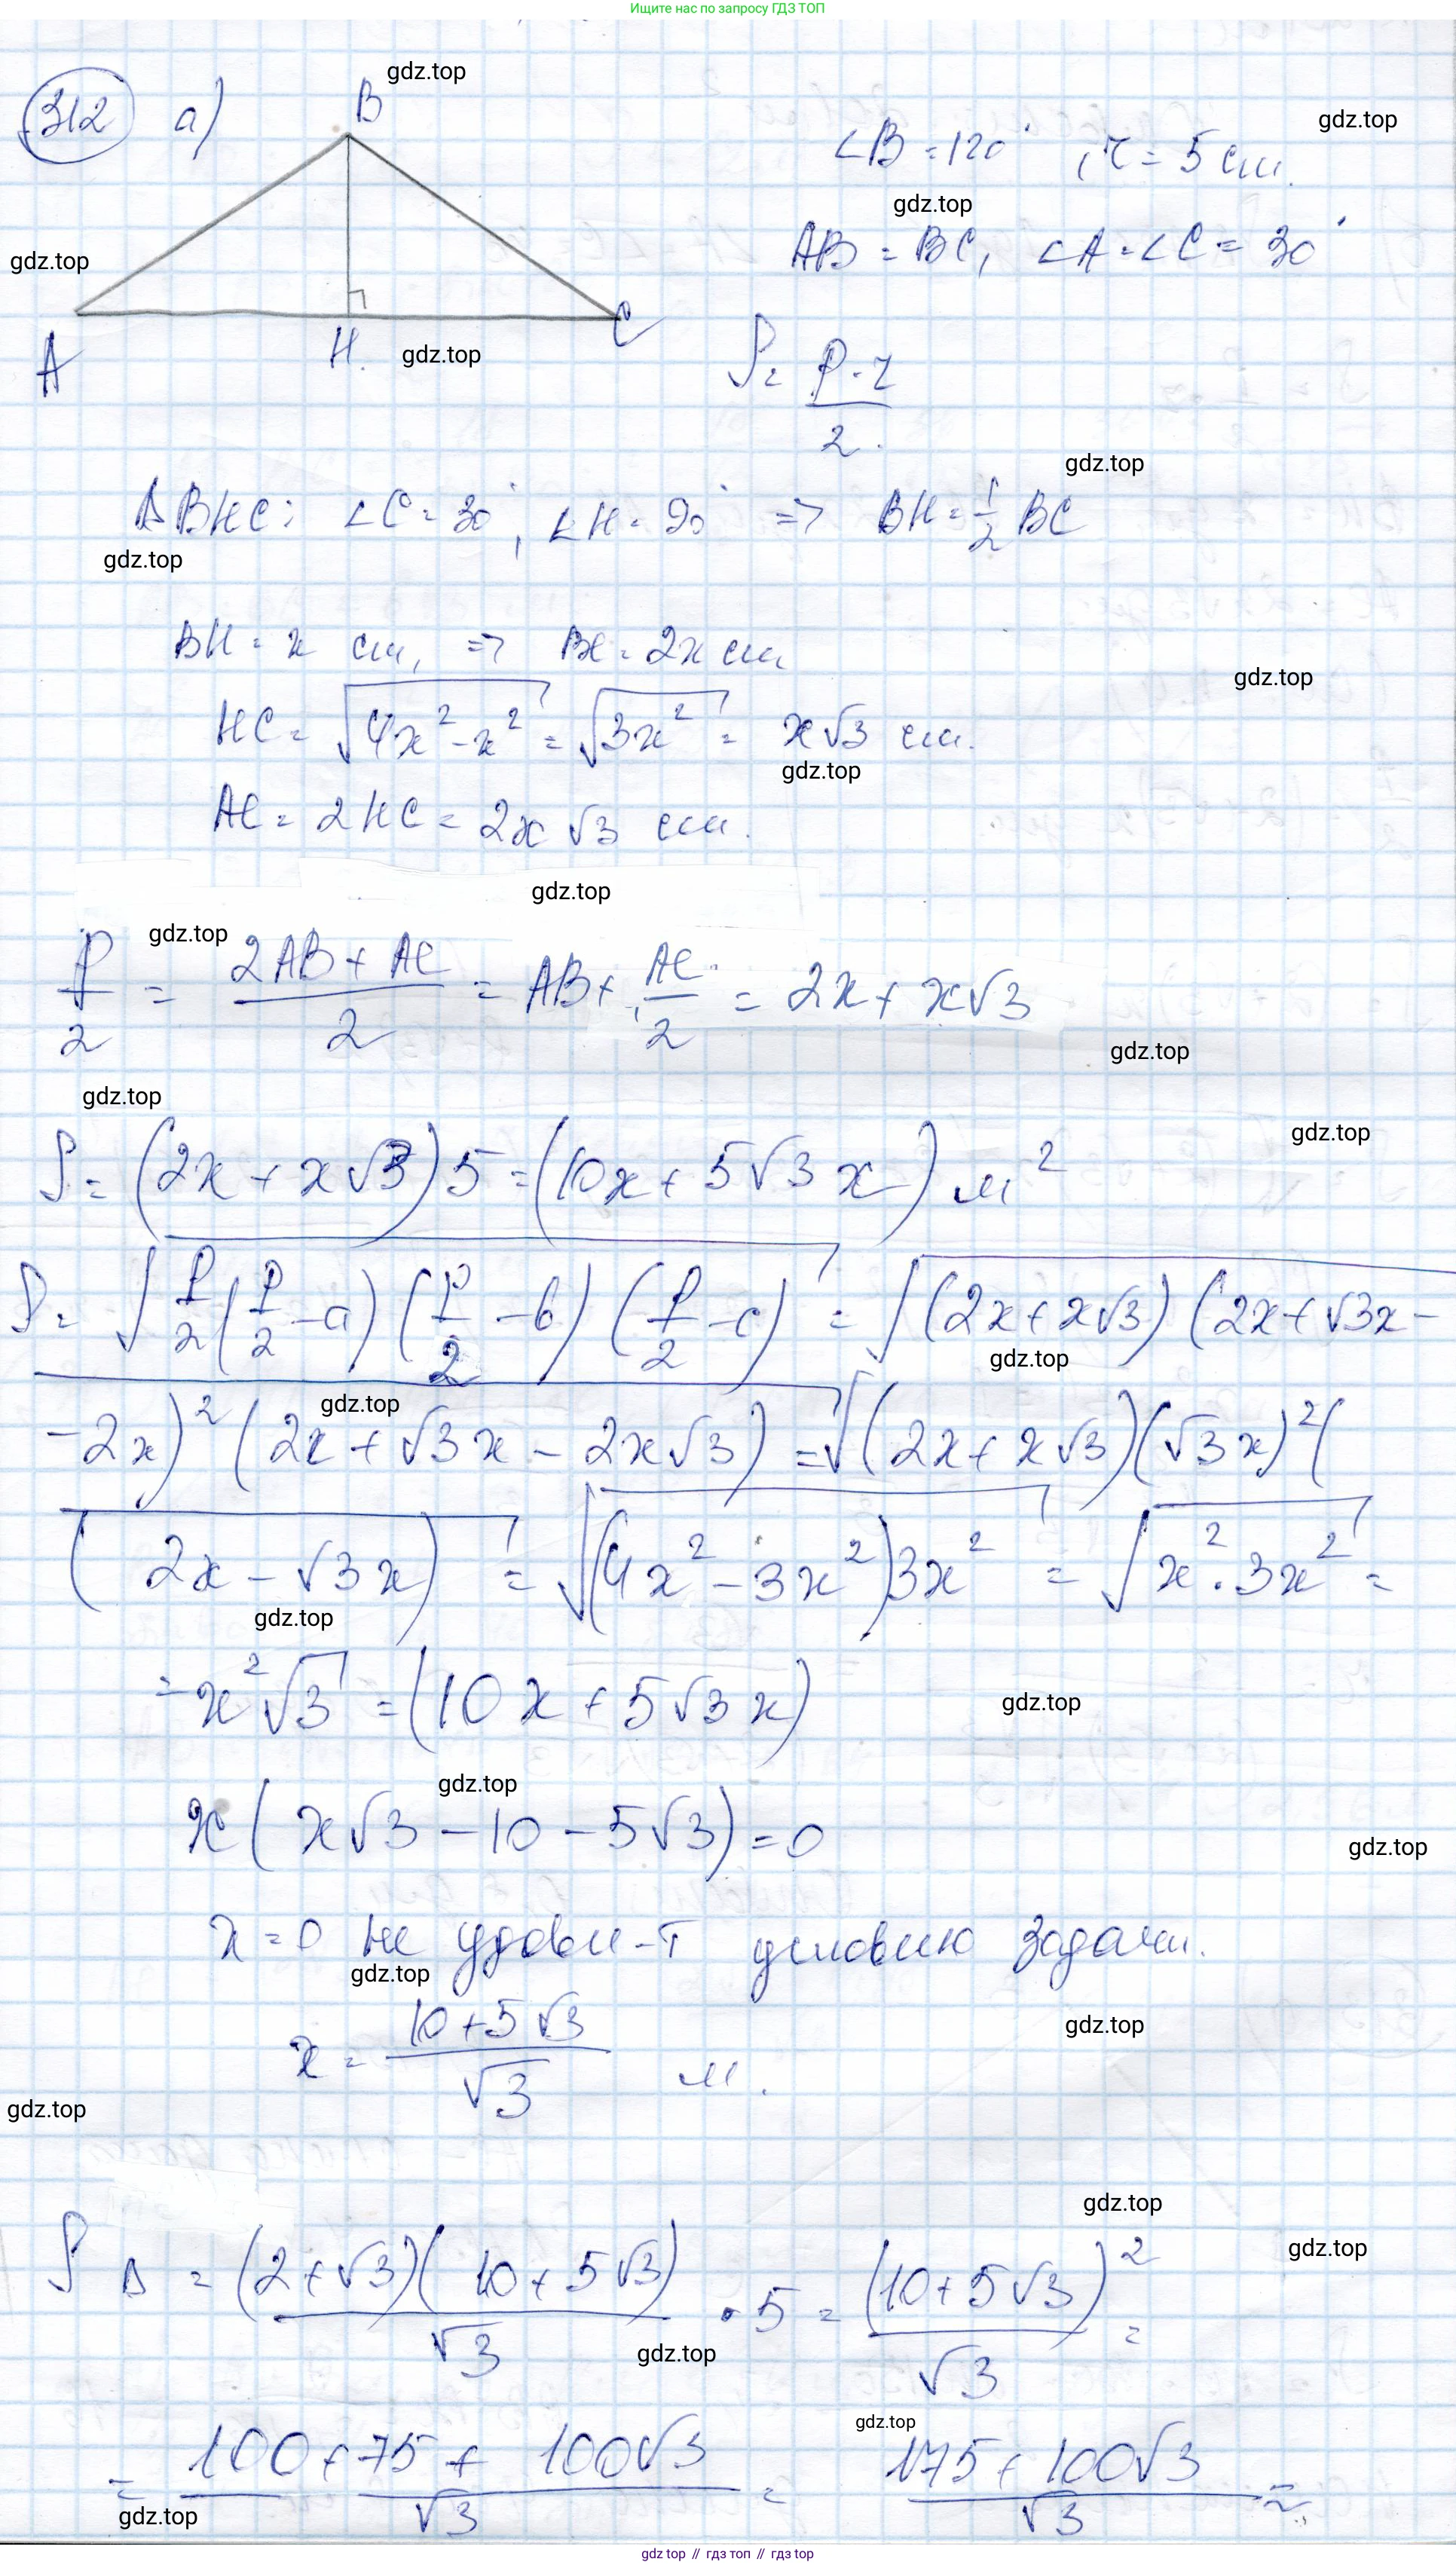 Ищите нас по запросу ГДЗ ТОП
312 а) B gdz.top
∠B = 120° , r = 5 см. gdz.top
gdz.top
AB = BC, ∠A = ∠C = 30°
gdz.top
A H. C
gdz.top
S = P·r / 2.
gdz.top
Δ BHC: ∠C = 30°, ∠H = 90° => BH = 1/2 BC
gdz.top
BH = x см, => BC = 2x см
gdz.top
HC = √(4x² - x²) = √(3x²) = x√3 см.
gdz.top
AC = 2HC = 2x√3 см.
gdz.top
gdz.top
P/2 = (2AB + AC)/2 = AB + AC/2 = 2x + x√3
gdz.top
gdz.top
gdz.top
S = (2x + x√3) 5 = (10x + 5√3 x) м²
S = √(P/2 (P/2 - a) (P/2 - b) (P/2 - c)) = √(2x + x√3) (2x + √3x -
gdz.top
gdz.top
- 2x)² (2x + √3x - 2x√3) = √(2x + x√3)(√3x)² (
(2x - √3x) = √((4x² - 3x²)3x²) = √(x² · 3x²) =
gdz.top
= x²√3 = (10x + 5√3x)
gdz.top
gdz.top
x(x√3 - 10 - 5√3) = 0
gdz.top
x = 0 не удовл-т условию задачи.
gdz.top
x = (10 + 5√3)/√3 м.
gdz.top
gdz.top
gdz.top
S Δ = (2 + √3)(10 + 5√3)/√3 · 5 = (10 + 5√3)²/√3 =
gdz.top
gdz.top
gdz.top
= (100 + 75 + 100√3)/√3 = (175 + 100√3)/√3 ≈
gdz.top
gdz top // гдз топ // гдз top